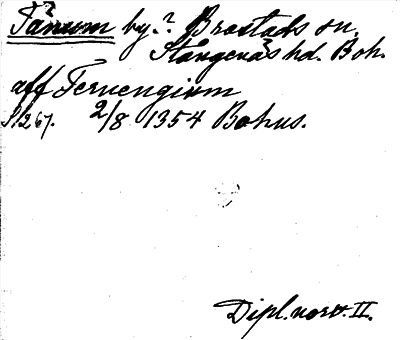 Tånum by.? Brastads sn.
Stångenäs hd. Boh.
aff Tervengium
S. 267. 2/8 1354 Bohus.
Dipl. norv. II.